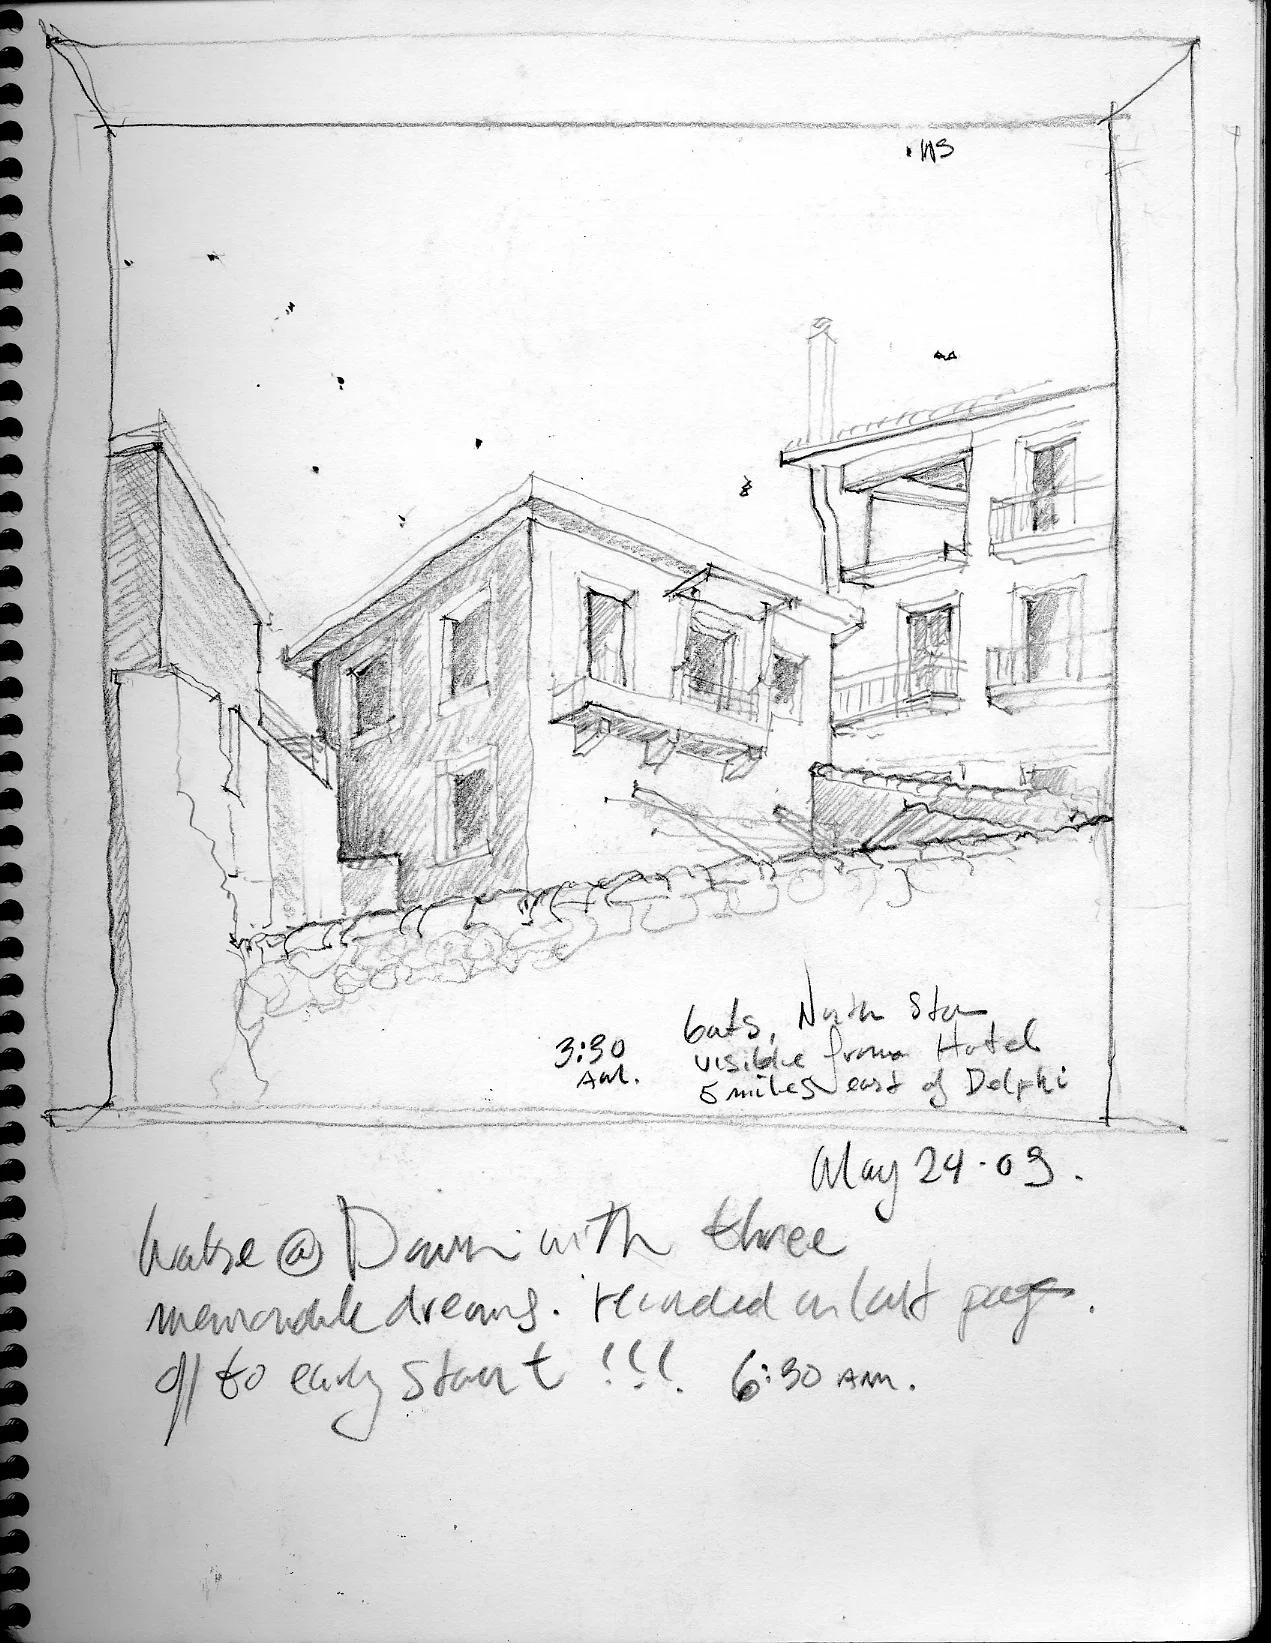 NS
3:30
AM.
bats, North Star
visible from Hotel
5 miles east of Delphi
May 24-09.
wake @ Dawn with three
memorable dreams. recorded on last page.
off to early start!!! 6:30 AM.